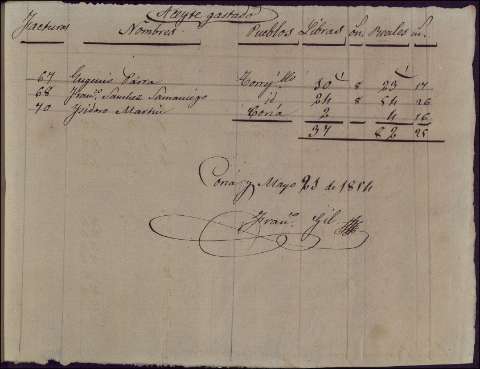 Aceyte gastado
Facturas Nombres Pueblos Libras on. Reales m.
67 Eugenio Parra 10 8 23 17
68 Fran.co Sanchez Samaniego id 24 8 54 26
70 Ysidoro Martin Coria 2 4 16
37 82 25
Coria y Mayo 23 de 1854
Fran.co Gil